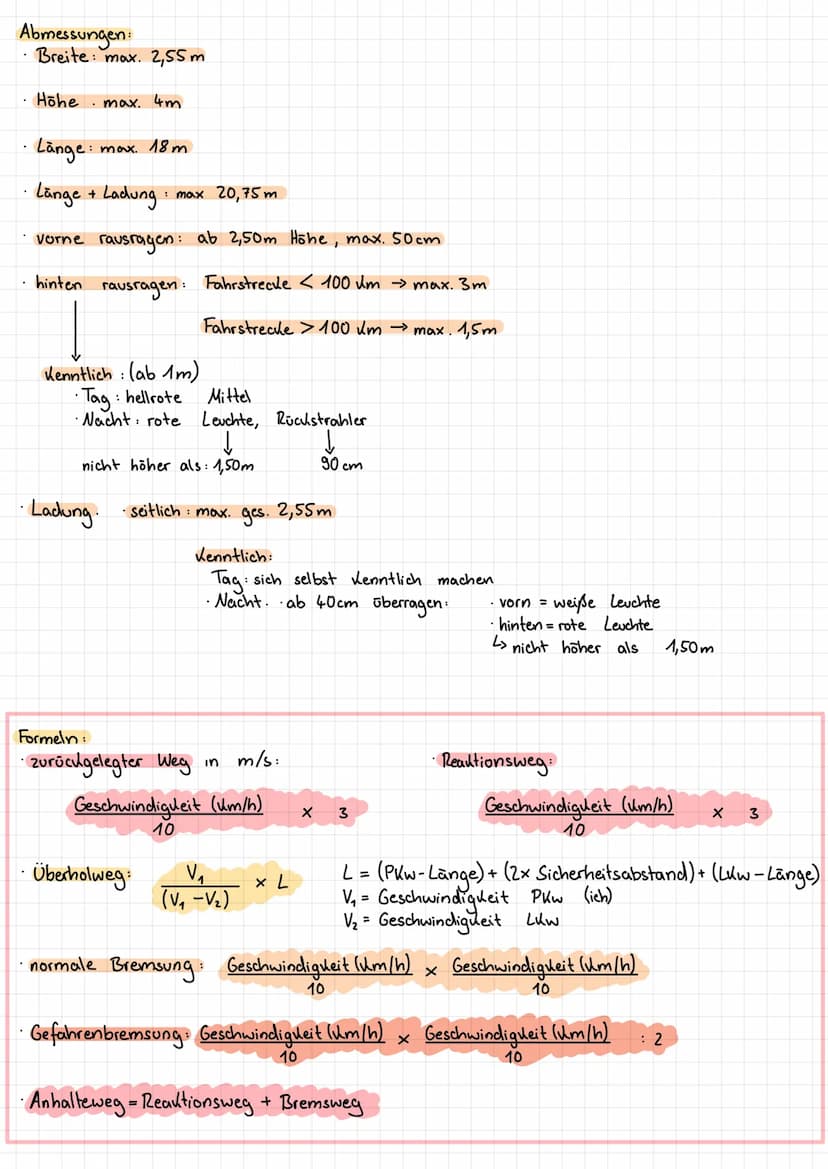 Abmessungen:
· Breite: max. 2,55 m
· Höhe . max. 4m
· Länge: max. 18 m
· Länge + Ladung: max 20,75 m
· vorne rausragen: ab 2,50m Höhe, max. 50 cm
· hinten rausragen: Fahrstrecke < 100 km → max. 3m
Fahrstrecke > 100 km → max. 1,5m
Kenntlich: (ab 1m)
· Tag: hellrote Mittel
· Nacht: rote Leuchte, Rückstrahler
nicht höher als: 1,50m 90 cm
· Ladung. · seitlich: max. ges. 2,55 m
Kenntlich:
Tag: sich selbst kenntlich machen
· Nacht. · ab 40cm überragen: · vorn = weiße Leuchte
· hinten = rote Leuchte
↳ nicht höher als 1,50m
Formeln:
· zurückgelegter Weg in m/s: · Reaktionsweg:
Geschwindigkeit (km/h) x 3 Geschwindigkeit (km/h) x 3
10 10
· Überholweg: V₁ x L L = (PKW-Länge) + (2x Sicherheitsabstand) + (LKW-Länge)
(V₁ - V₂) V₁ = Geschwindigkeit PKW (ich)
V₂ = Geschwindigkeit LKW
· normale Bremsung: Geschwindigkeit (km/h) x Geschwindigkeit (km/h)
10 10
· Gefahrenbremsung: Geschwindigkeit (km/h) x Geschwindigkeit (km/h) : 2
10 10
· Anhalteweg = Reaktionsweg + Bremsweg